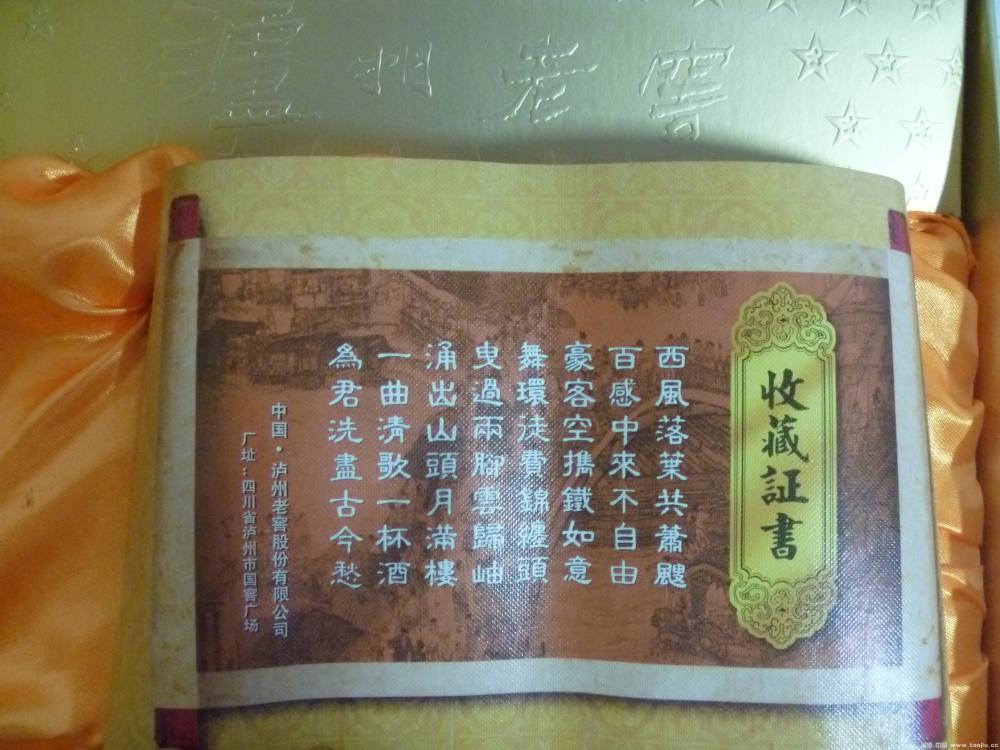 瀘州老窖
收藏証書
西風落葉共蕭颼
百感中來不自由
豪客空攜鐵如意
舞環徒費錦纏頭
曳過兩腳雲歸岫
涌出山頭月滿樓
一曲清歌一杯酒
為君洗盡古今愁
中国·泸州老窖股份有限公司
厂址:四川省泸州市国窖广场
www.taoju.cc